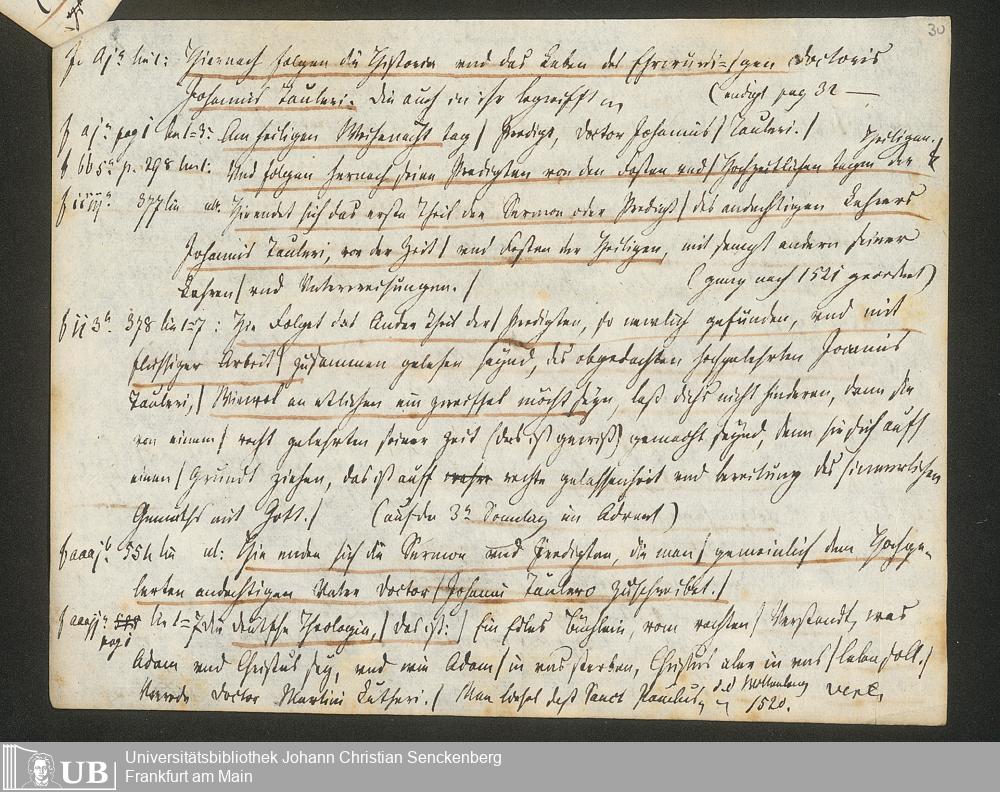 30
f. aj a lin 1: Hiernach folgen die Historia vnd das Leben des Ehrwürdi=/gen Doctoris
Johannis Tauleri. Die auch in ihr begreifft
(endigt pag 32 —
f aja pag 1 lin 1=3: Am heiligen Weihenacht tag/ Predigt, Doctor Johannis/ Tauleri./
Heiligen./
f bb5a p. 298 lin 1: Und folgen hernach seine Predigten von den Festen vnd/ Hochzeitlichen tagen der
f iiiija 377 lin ult. Hie endet sich das erste Theil der Sermon oder Predigt/ des andechtigen Lehrers
Johannis Tauleri, von der Zeit/ vnd Festen der Heiligen, mit sampt andern seiner
Lehren/ vnd Unterweisungen./
(ganz nach 1521 geordnet)
f ii 3a. 378 lin 1=7: Hie Folget das Ander Theil der/ Predigten, so newlich gefunden, vnd mit
fleissiger Arbeit/ zusammen gelesen seynd, des obgedachten hochgelehrten Joannis
Tauleri,/ Wiewol an etlichen ein zweiffel möcht seyn, laß dichs nicht hinderen, dann sie
von einem/ recht gelehrten seiner Zeit (das ist gewiß) gemacht seynd, denn sie sich auff
einen/ Grundt ziehen, das ist auff rechte gelassenheit vnd bereitung des/ innerlichen
Gemüths mit Gott./ (auf den 3n Sonntag im Advent)
f aaaj b 554 lin ult: Hie enden sich die Sermon vnd Predigten, die man/ gemeinlich dem Hochge-
lerten andechtigen Vatter Doctor/ Johanni Taulero zuschreibet./
f aaajj a pag 1 lin 1=7 Die deutsche Theologia,/ das ist:/ Ein Edles Büchlein, vom rechten/ Verstandt, was
Adam vnd Christus sey, vnd wie Adam/ in vns sterben, Christus aber in vns/ leben soll./
Vorrede Doctor Martini Lutheri./ Man lieset daß Sanct Paulus 1520. vert.
UB
Universitätsbibliothek Johann Christian Senckenberg
Frankfurt am Main